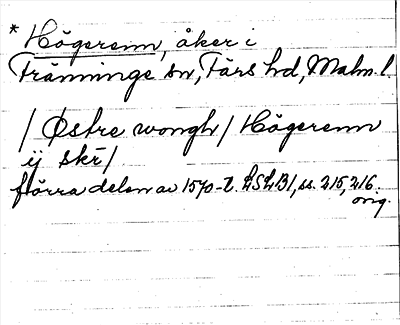 * Högerenn, åker i
Tränninge sn, Färs hd, Malm. l.
/ Østre wongh / Högerenn
ij skr̄ /
Förra delen av 1570-t. LSLB1, ss. 215, 216.
orig.